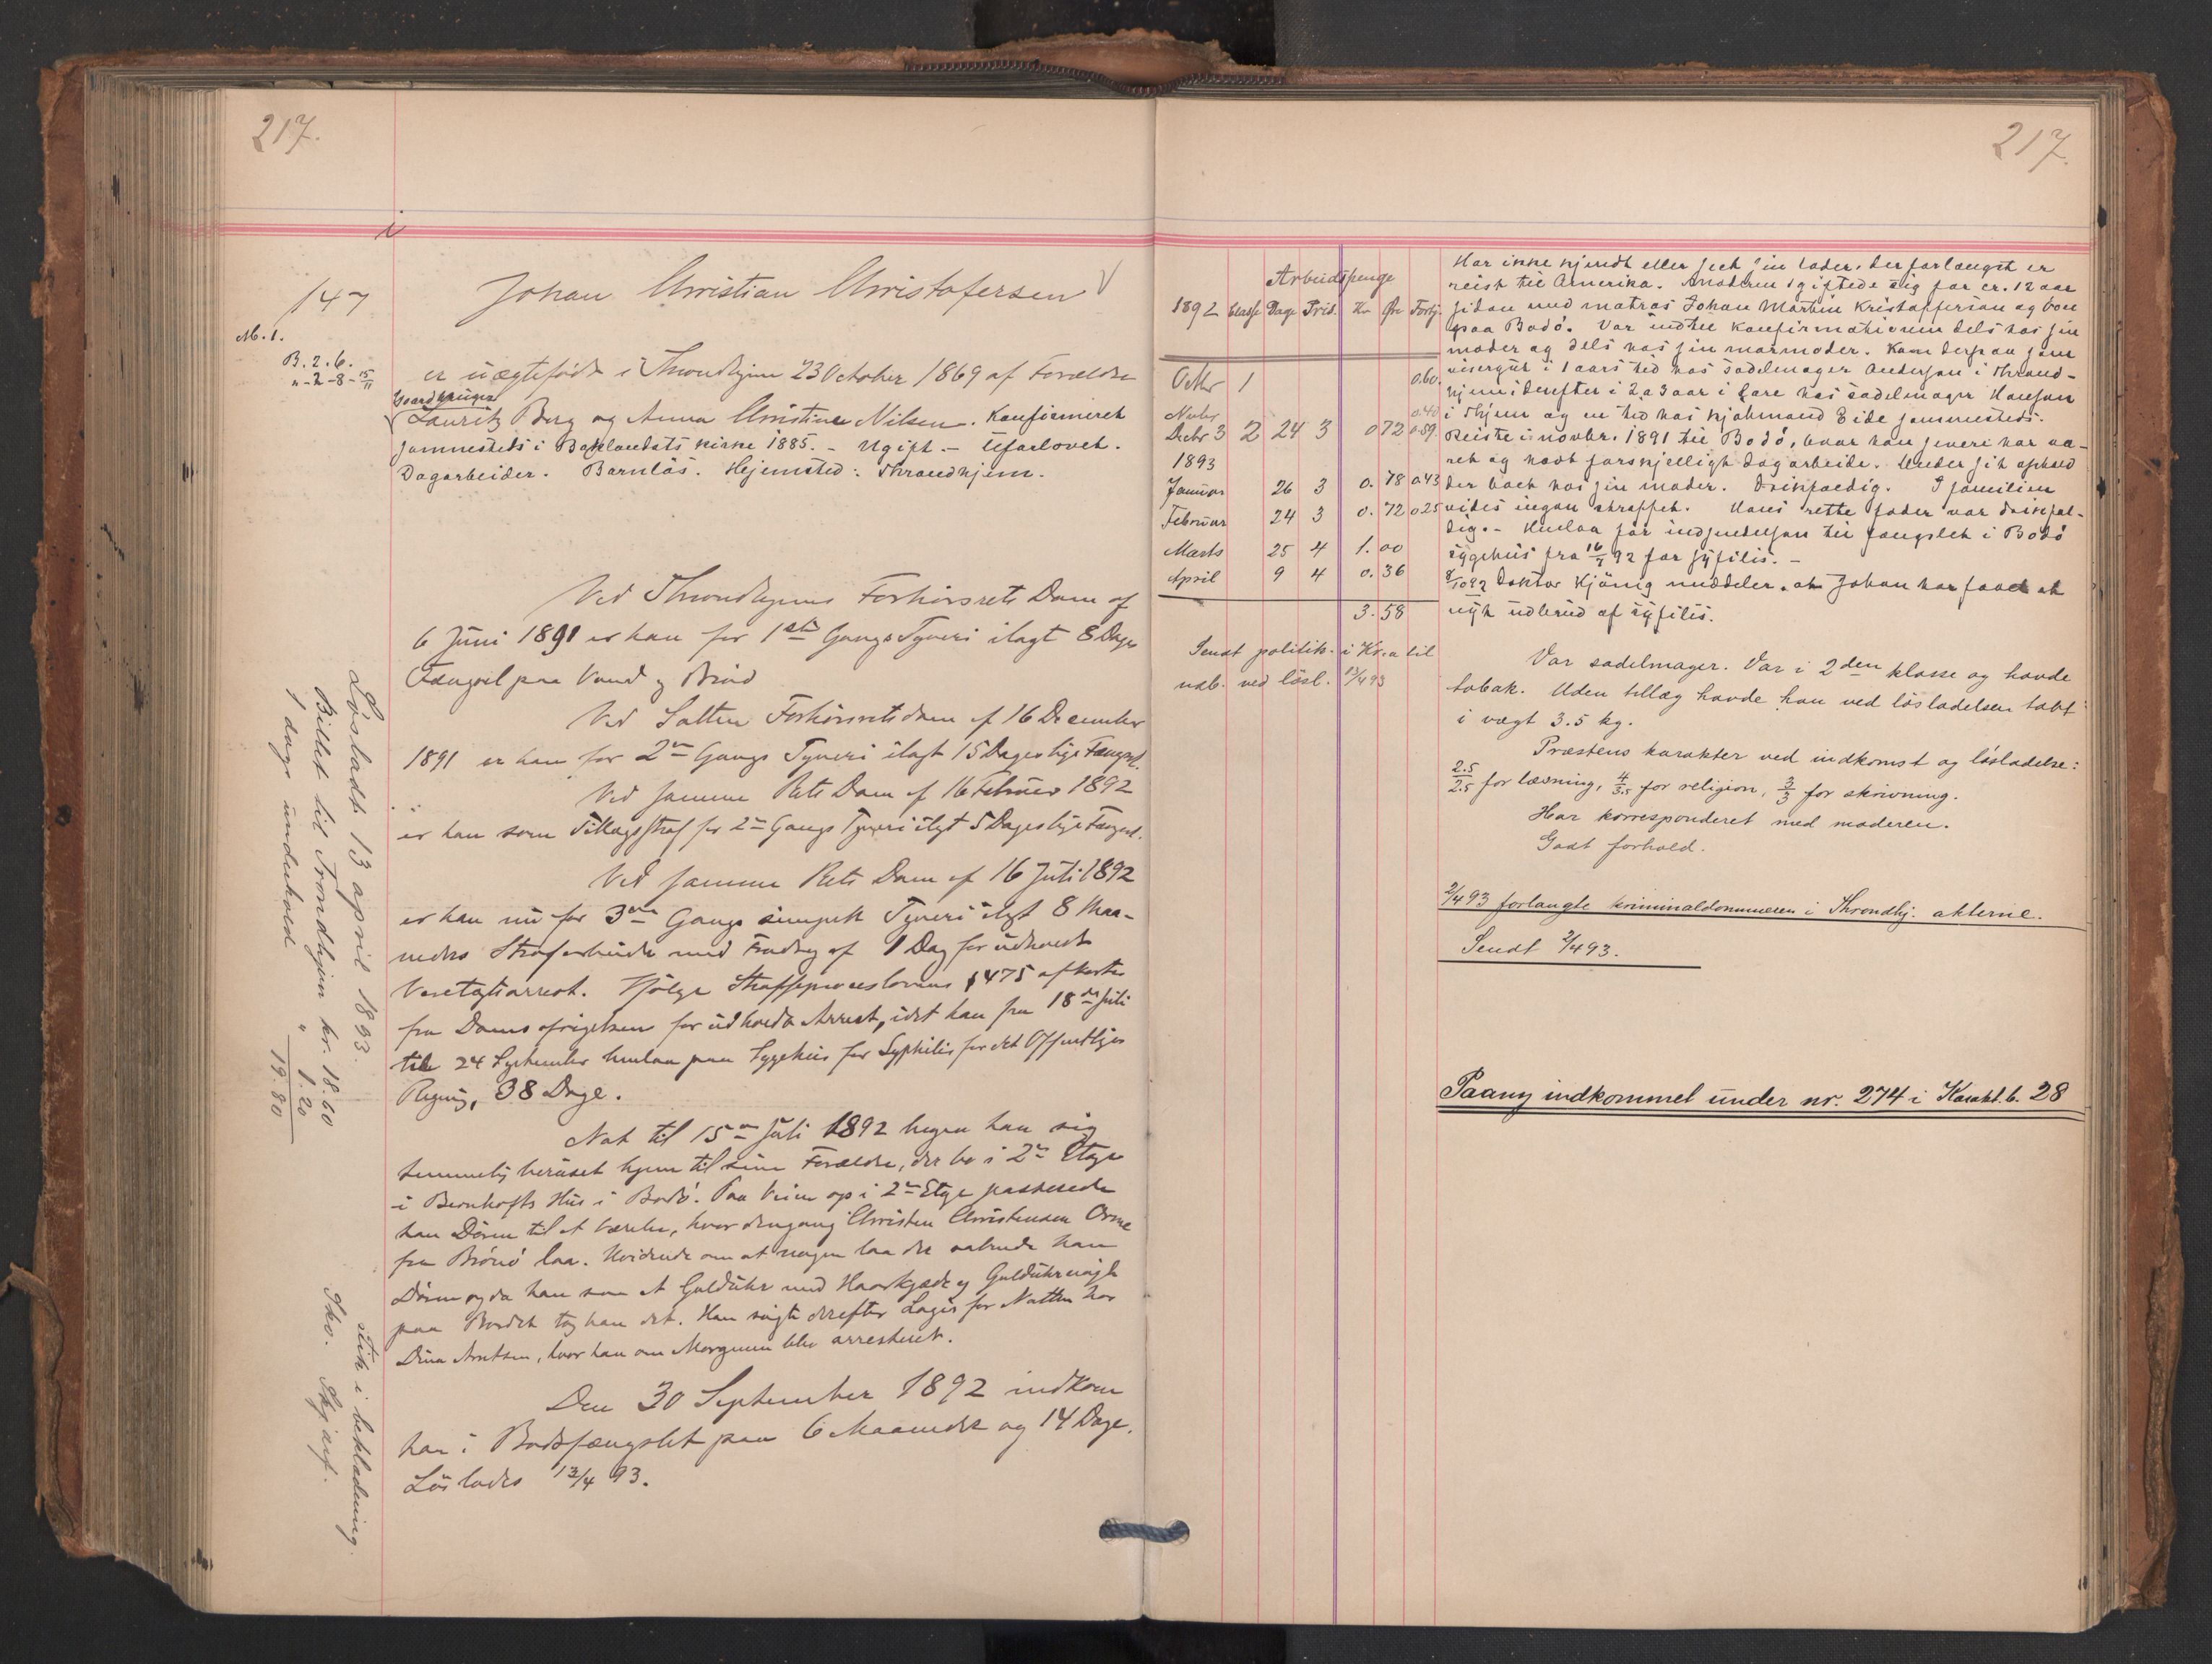 217.
i
147
M. 1.
B. 2. 6.
"-2-8-15/11
Johan Christian Christofersen V
er uægtefödt i Throndhjem 23 October 1869 af Forældre
Gaardbruger
Lauritz Berg og Anna Christine Nilsen. Konfirmeret
sammesteds i Baklandets kirke 1885. - Ugift. - Uforlovet.
Dagarbeider. Barnlös. Hjemsted: Throndhjem.
Ved Throndhjems Forhörsrets Dom af
6 Juni 1891 er han for 1ste Gangs Tyveri ilagt 8 Dages
Fængsel paa Vand og Bröd
Ved Saltens Forhörsrets dom af 16 December
1891 er han for 2en Gangs Tyveri ilagt 15 Dages lige Fængsel.
Ved samme Rets Dom af 16 Februar 1892
er han som Tillægsstraf for 2en Gangs Tyveri ilagt 5 Dages lige Fængsel.
Ved samme Rets Dom af 16 Juli 1892
er han nu for 3die Gangs simpelt Tyveri ilagt 8 Maa-
neders Strafarbeide med Fradrag af 1 Dag for udholdt
Varetægtsarrest. Ifölge Straffeproceslovens § 475 afkortes
fra Doms afsigelsen for udholdt Arrest, idet han fra 18de Juli
til 24 September henlaa paa Sygehus for Syphilis for det Offentliges
Regning, 38 Dage.
Nat til 15en Juli 1892 begav han sig
temmelig beruset hjem til sine Forældre, der bo i 2en Etage
i Bernhofts Hus i Bodö. Paa Veien op i 2en Etage passerede
han Dören til et Værelse, hvor dengang Christen Christensen Orme
fra Brönö laa. Uvidende om at nogen laa der aabnede han
Dören og da han saa et Guldühr med Haarkjæde og Guldührnögle
paa Bordet tog han det. Han sögte derefter Logis for Natten hos
Dina Arntsen, hvor han om Morgenen blev arresteret.
Den 30 September 1892 indkom
han i Bodsfængslet paa 6 Maaneder og 14 Dage.
Löslades 13/4 93.
Lösladt 13 april 1893.
Billet til Trondhjem kr. 18.60
1 dags underhold " 1.20
19.80
Stik i beklædning.
Sko. Skjærf.
217.
Arbeidspenge
1892 Classe Dage Frid. Kr Öre Forbr.
Octbr 1 0.60.
Novbr 0.40
Decbr 3 2 24 3 0 72 0.59.
1893
Januar 26 3 0. 78 0.43
Februar 24 3 0. 72 0.25
Marts 25 4 1. 00
April 9 4 0. 36
3. 58
Sendt politik. i Kr.a til
udb. ved lösl. 13/4 93
Har ikke kjendt eller seet sin fader, der forlængst er
reist til Amerika. Moderen giftede sig for cr. 12 aar
siden med matros Johan Martin Kristoffersen og bor
paa Bodö. Var indtil konfirmationen dels hos sin
moder og dels hos sin mormoder. Kom derpaa som
visergut i 1 aars tid hos sadelmager Andersen i Thrond-
hjem; derefter i 2 a 3 aar i lære hos sadelmager Hansen
i Thjem og en tid hos kjöbmand Eide sammesteds.
Reiste i novbr. 1891 til Bodö, hvor han senere har væ-
ret og havt forskjelligt dagarbeide. Under sit ophold
der boet hos sin moder. Drikfældig. I familien
vides ingen straffet. Hans rette fader var drikfæl-
dig. - Henlaa för indsendelsen til fængslet i Bodö
sygehus fra 16/7 92 for syfilis. -
8/10 92 Doktor Hjönig meddeler, at Johan har faaet et
nyt udbrud af syfilis.
Var sadelmager. Var i 2den klasse og havde
tobak. Uden tillæg havde han ved lösladelsen tabt
i vægt 3.5 kg.
Præstens karakter ved indkomst og lösladelse:
2.5/2.5 for læsning, 4/3.5 for religion, 3/3 for skrivning.
Har korresponderet med moderen.
Godt forhold.
2/4 93 forlangte kriminaldommeren i Throndhj. akterne.
Sendt 2/4 93.
Paany indkommet under nr. 274 i Karakt. b. 28